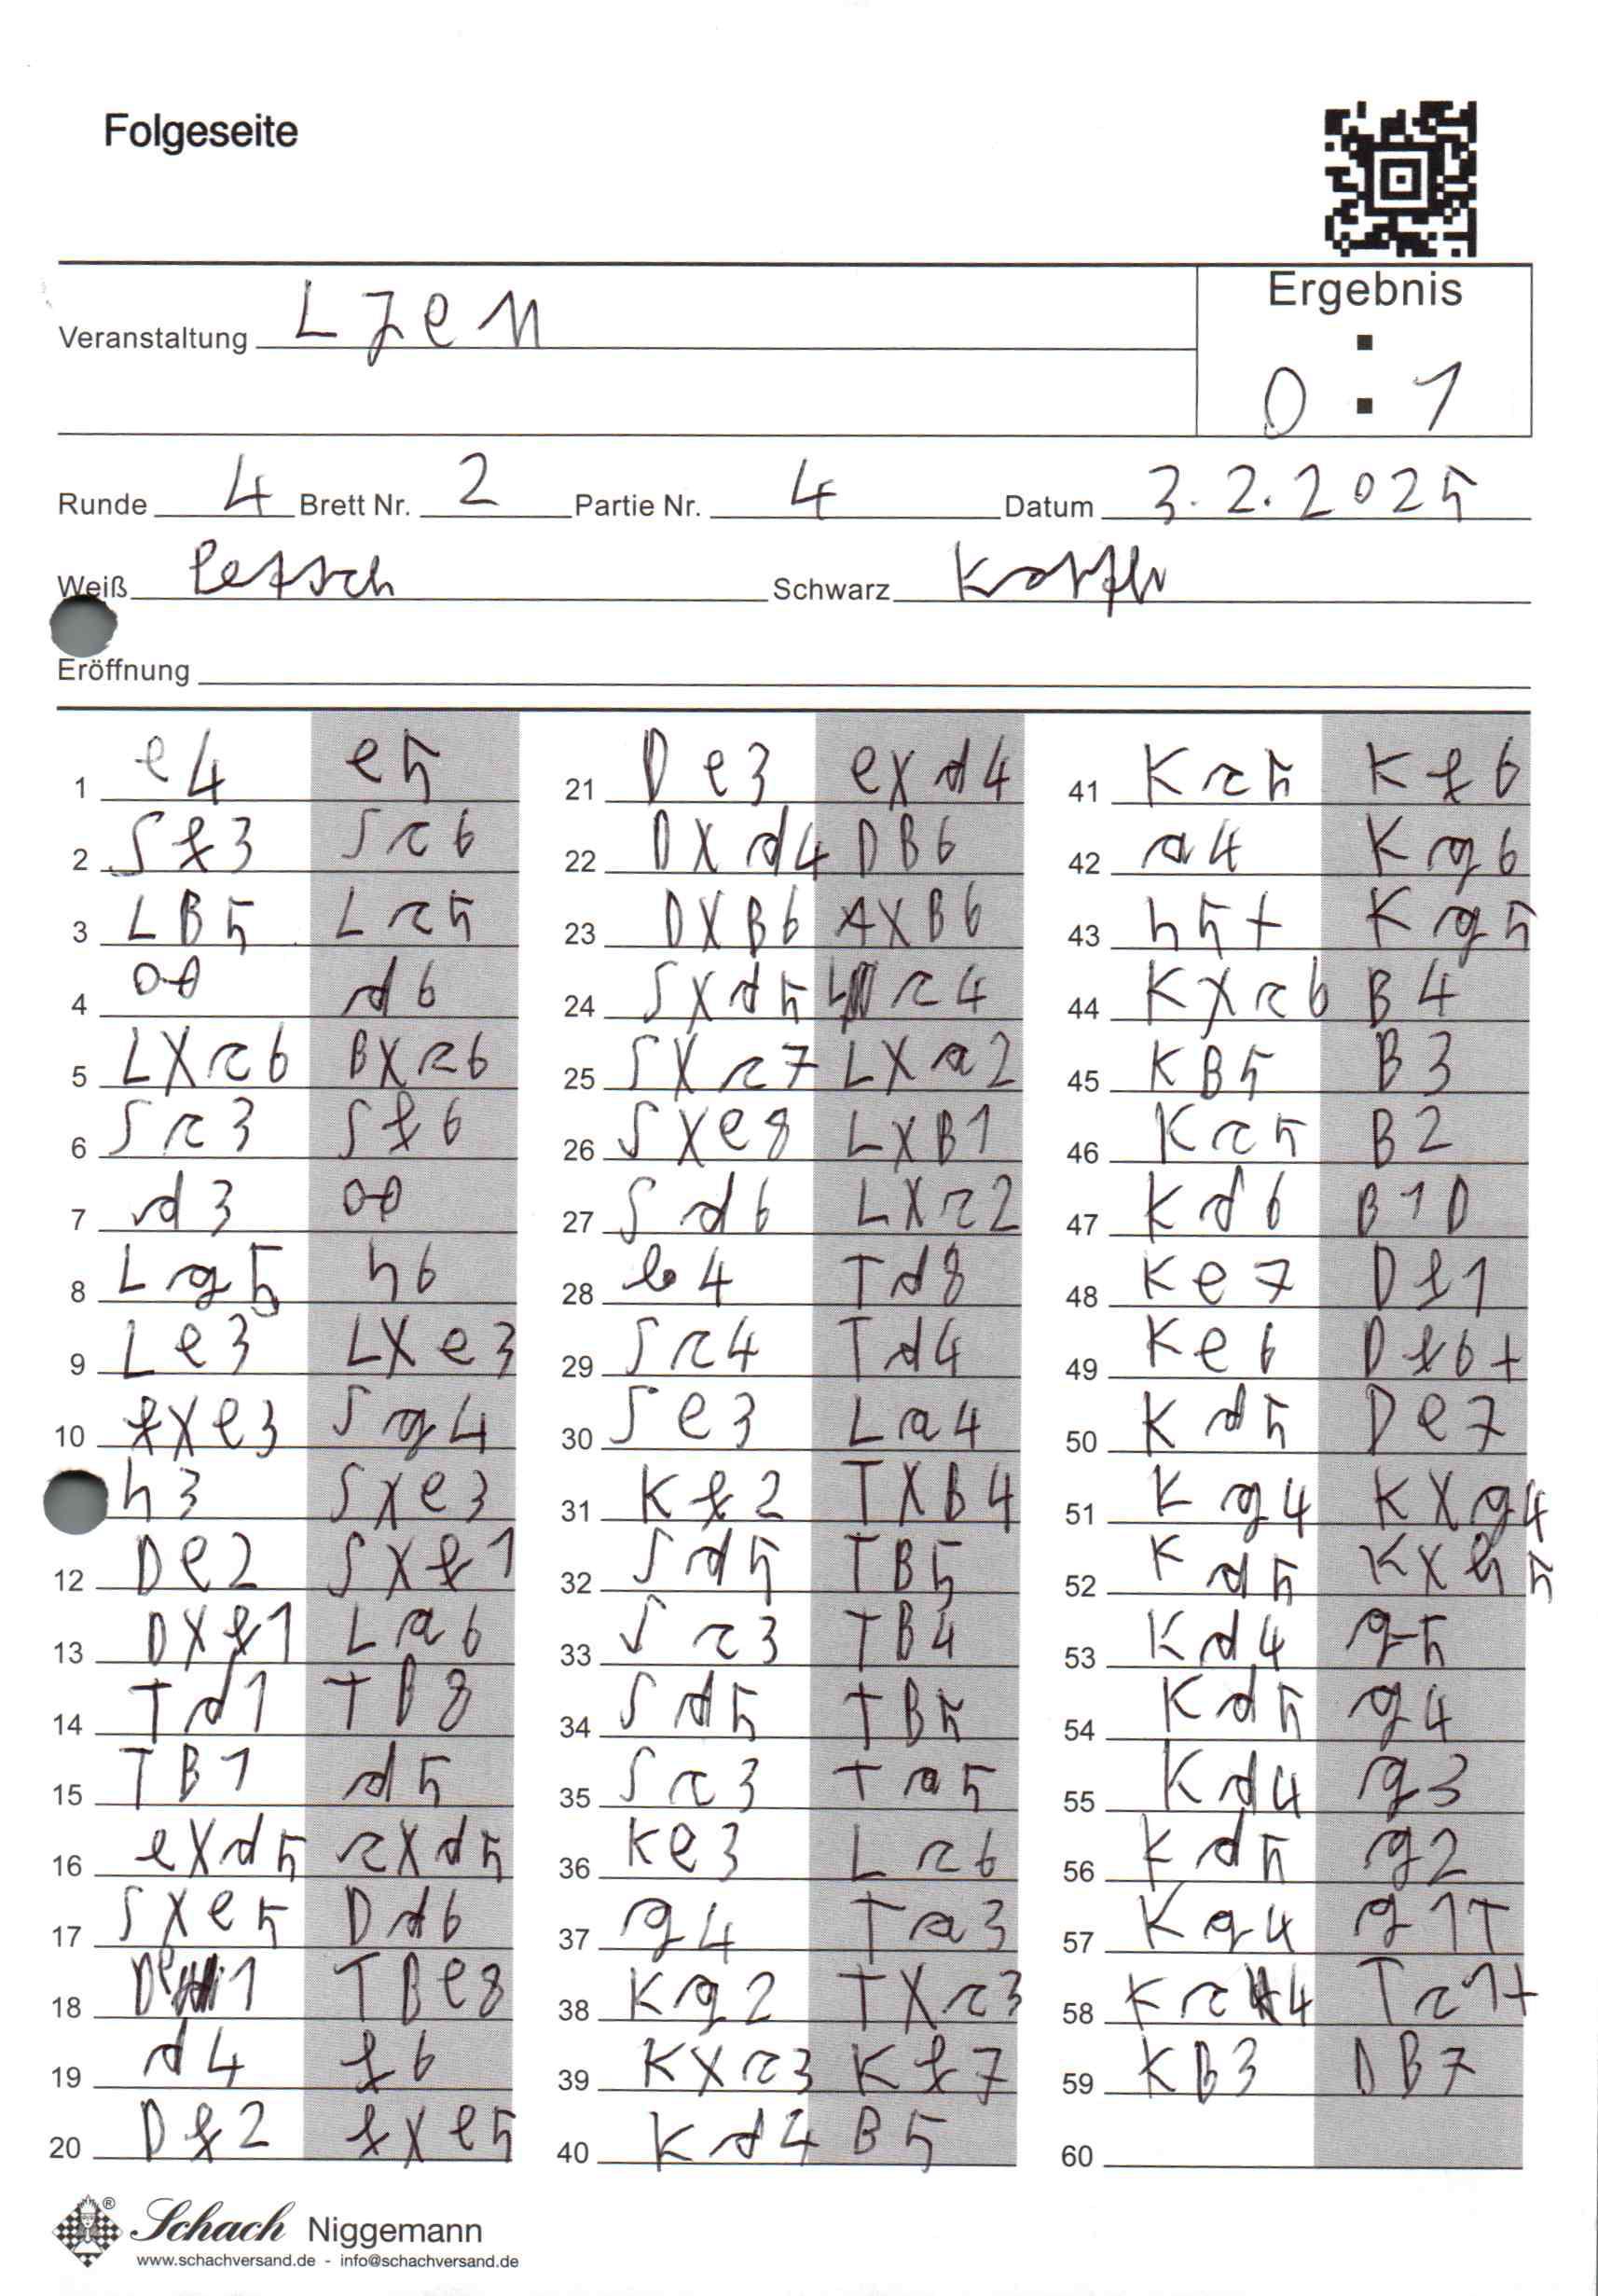 Folgeseite
Veranstaltung
Ergebnis
0 : 1
Runde 4 Brett Nr. 2 Partie Nr. 4 Datum 3.2.2025
Weiß Schwarz
Eröffnung
1 e4 e5
2 Sf3 Sc6
3 LB5 Lc5
4 00 d6
5 LXc6 BXc6
6 Sc3 Sf6
7 d3 00
8 Lg5 h6
9 Le3 LXe3
10 fXe3 Sg4
h3 SXe3
12 De2 SXf1
13 DXf1 La6
14 Td1 TB8
15 TB1 d5
16 eXd5 cXd5
17 SXe5 Dd6
18 De1 TBe8
19 d4 f6
20 Df2 fXe5
21 De3 eXd4
22 DXd4 DB6
23 DXB6 AXB6
24 SXd5 Lc4
25 SXc7 LXa2
26 SXe8 LXB1
27 Sd6 LXc2
28 b4 Td8
29 Sc4 Td4
30 Se3 La4
31 Kf2 TXB4
32 Sd5 TB5
33 Sc3 TB4
34 Sd5 TB5
35 Sc3 Ta5
36 Ke3 Lc6
37 g4 Ta3
38 Kg2 TXc3
39 KXc3 Kf7
40 Kd4 B5
41 Kc5 Kf6
42 a4 Kg6
43 h5+ Kg5
44 KXc6 B4
45 KB5 B3
46 Kc5 B2
47 Kd6 B1D
48 Ke7 Df1
49 Ke6 Df6+
50 Kd5 De7
51 Kg4 KXg4
52 Kd5 KXh5
53 Kd4 g5
54 Kd5 g4
55 Kd4 g3
56 Kd5 g2
57 Kg4 g1T
58 Kc4 Tc1+
59 KB3 DB7
60
Schach Niggemann
www.schachversand.de - info@schachversand.de